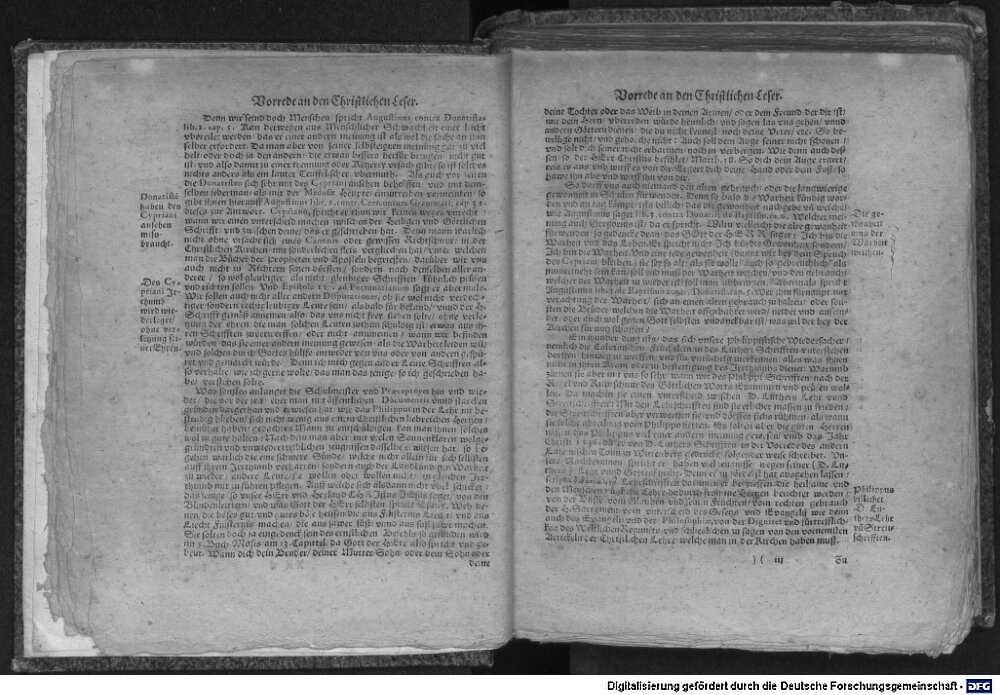 Vorrede an den Christlichen Leser.
Denn wir seind doch Menschen / spricht Augustinus contra Donatistas
lib. 2. cap. 5. Kan derwegen aus Menschlicher Schwachheit einer leicht
das er einer andern meinung ist als wol die sache an ihm
selber erfordert. Da man aber von seiner selbsteignen meinung gar zu viel
helt oder doch ja den andern / die etwas bessers herfür bringen nicht gut
ist und also damit zu einer trennung oder Ketzerey ursach gibt / so ist solches
nichts anders als ein lauter Teuffelischer ubermuth. Als auch vor zeiten
die Donatisten sich sehr mit des Cypriani ansehen behulffen / und mit dem
selben jederman / als mit der Medusa Heupte /
gibt ihnen hierauff Augustinus lib. 2. contr. Cresconium Grammat. cap. 32.
dieses zur Antwort. Cypriano / spricht er thun wir keines weges unrecht /
wann wir einen unterscheid machen zwischen der Heiligen und Göttlichen
Schrifft / und zwischen deme / das er geschrieben hat. Denn warlich
nicht ohne ursache sich einen Canonem oder gewissen Richtschnur / in der
Christlichen Kirchen / mit sonderlichem fleis verglichen hat / unter welche
man die Bücher der Propheten und Aposteln begriffen / darüber wir uns
auch nicht zu Richtern setzen dörffen / sondern nach denselben aller an-
derer / so wol gleubiger / als nicht gleubiger Schrifften kühnlich prüfen
und richten sollen. Und Epistola 111. ad Fortunatianum sagt er abermals.
Wir sollen auch nicht aller andern Disputationes, ob sie wol nicht verdech-
tiger sondern rechtgleubiger Leute sein / alsbald für bekand / und der H.
Schrifft gemäss annemen also / das uns nicht frey stehen solte / ohne verle-
tzung der ehren die man solchen Leuten zuthun schuldig ist / etwas aus ih-
ren Schrifften zuverwerffen / oder nicht anzunemen / wann wir befinden
würden / das sie einer andern meinung gewesen / als die Warheit leiden wil /
und solches durch Gottes hülffe entweder von uns oder von andern gespü-
ret und gemerckt würde. Denn ich mich gegen ander Leute Schrifften al-
so verhalte / wie ich gerne wolte / das man das jenige / so ich geschrieben ha-
be / verstehen solte.
Was sonsten anlanget die Schulmeister und Praeceptores hin und wie-
der / da vor der zeit ehe man mit öffentlichen Documentis und starcken
gründen dargethan und erwiesen hat / wie das Philippus in der Lehr nit be-
stendig blieben / sich nicht wenig aus einem Christlichen liebreichen Hertzen /
bemühet haben / gedachten Mann zu entschüldigen / kan man ihnen solches
wol zu gute halten / Nach dem man aber mit vielen Sonnenklaren wolge-
gründten und unwiedertreiblichen zeugnissen dasselbe erwiesen hat / so be-
gehen warlich die eine schwere Sünde / welche nicht allein für sich selbsten
auff ihrem Irrthumb verharren / sondern auch der Landkündigen Warheit
zu wieder / andere Leute / sie wollen oder wollen nicht / in gleichen Irr-
thumb mit zu führen pflegen. Auff welche sich alsdann nicht ubel schicket /
das jenige / so unser HErr und Heyland CHRistus JEsus saget / von den
Blindenleitern / und was Gott der HErr selbsten spricht Esai. 5. Weh de-
nen / die böses gut / und gutes böse heissen die aus Finsternis Liecht und aus
Liecht Finsternis machen / die aus sawer süss / und aus süss sawr machen.
Sie solten doch ja eingedenck sein des ernstlichen Befehls so gefunden wird
im 5. Buch Mosis am 13. Capittel / da Gott der HErr also spricht und ge-
beut. Wann dich dein Bruder / deiner Mutter Sohn oder dein Sohn oder
deine
Donatistē
haben des
Cypriani
ansehen
miss-
braucht.
Des Cy-
priani Jr-
thumb
wird wie-
derleget /
ohne ver-
letzung sei-
ner Ehren.
Vorrede an den Christlichen Leser.
deine Tochter oder das Weib in deinen Armen / oder dein Freund der dir ist /
wie dein Hertz / uberreden würde heimlich / und sagen / las uns gehen / und
andern Göttern dienen / die du nicht kennest noch deine Veter / etc. So be-
willige nicht / und gehorche nicht: Auch soll dein Auge seiner nicht schonen /
und solt dich seiner nicht erbarmen noch ihn verbergen. Wie denn auch des-
sen / so der HErr Christus befihlet / Matth. 18. So dich dein Auge ergert /
reis es aus und wirff es von dir. Ergert dich deine Hand oder dein Fuss / so
hawe ihn abe und wirff ihn von dir.
So darff uns auch niemand den alten gebrauch / oder die langwierige
gewonheit in Schulen fürwenden. Wenn so bald die Warheit kündig wor-
den / und an tag kömpt / ists billich / das die gewonheit nachgebe und weiche /
wie Augustinus saget lib. 3. contra Donatist. de Baptismo. ca. 6. Welcher mei-
nung auch Gregorius ist / da er spricht. Wiltu vielleicht die alte gewonheit
fürwenden / so gedencke dran das GOtt der HERR saget: Ich bin die
Warheit und das Leben. Er spricht nicht / Ich bin die Gewonheit sondern /
Ich bin die Warheit. Und eine jede gewonheit / damit wir bey dem Spruch
des Cypriani bleiben / sie sey so alt / als sie wolle / auch so gebreuchlich / als
sie immermehr sein kan / soll und muss der Warheit weichen / und den gebrauch /
welcher der Warheit zu wieder ist / soll man abbringen. Abermals spricht
Augustinus lib. 5. de Baptismo conga. Donatist. cap. 5. Wer ihm fürnimpt mit
verachtung der Warheit / sich an einen alten gebrauch zu halten / oder sol-
ten die Brüder welchen die Warheit offenbahret wird / neidet und anfein-
det / oder auch wol gegen Gott selbsten undanckbar ist / was wil der bey der
Kirchen für nutz schaffen?
Ein wunder ding ists / das sich unsere Philippistische Wiedersacher /
nemlich die Calvinischen Füchslein / in des Luthers Schrifften unterstehen
dörffen / hinweg zu werffen / und für untüchtig anzunemen / alles was ihnen
nicht in ihren Kram / oder zu bestettigung des Irrthumbs dienet. Warumb
zürnen sie aber mit uns / so sehr / wann wir des Philippi Schrifften nach der
Regel und Richtschnur des Göttlichen Worts Examinirn und prüfen wol-
len. Da machen sie einen unterscheid zwischen D. Luthers Lehr und
Streitschrifften: Mit den Lehrschrifften sind sie etlicher massen zu frieden /
die Streitschrifften aber verwerffen sie und dörffen sichs rühmen / als wann
sie solche abtheilung vom Philippo hetten. Es solten aber die guten Herren
wissen / das Philippus viel einer andern meinung gewesen / und das Jahr
Christi 1551. als er von D. Luthers Schrifften in der Vorrede des andern
Lateinischen Tomi zu Wittenberg gedruckt / folgender weise schreibet. Un-
sere Nachkommen / spricht er / haben viel zeugnisse wegen seiner (D. Lu-
thers) Lehr und Gottesfurcht. Denn er zweierley hat ausgehen lassen /
Lehrschrifften / darinnen er begreiffet die heilsame und
den Menschen nützliche Lehr / dadurch fromme Hertzen berichtet werden /
von der Busse / vom Glauben und seinen Früchten / vom rechten gebrauch
der H. Sacrament / vom unterscheid des Gesetzes und Evangelii / wie denn
auch des Evangelii und der Philosophiae, von der Dignitet und fürtrefflich-
keit des Weltlichen Regiments und schlieslichen zu sagen von den vornemsten
Artickeln der Christlichen Lehre / welche man in der Kirchen haben muss.
)( iij
Zu
Die ge-
wonheit
mus der
Warheit
weichen.
Philippus
billichet
D. Lu-
thers Lehr
und Streit-
schrifften.
Digitalisierung gefördert durch die Deutsche Forschungsgemeinschaft - DFG